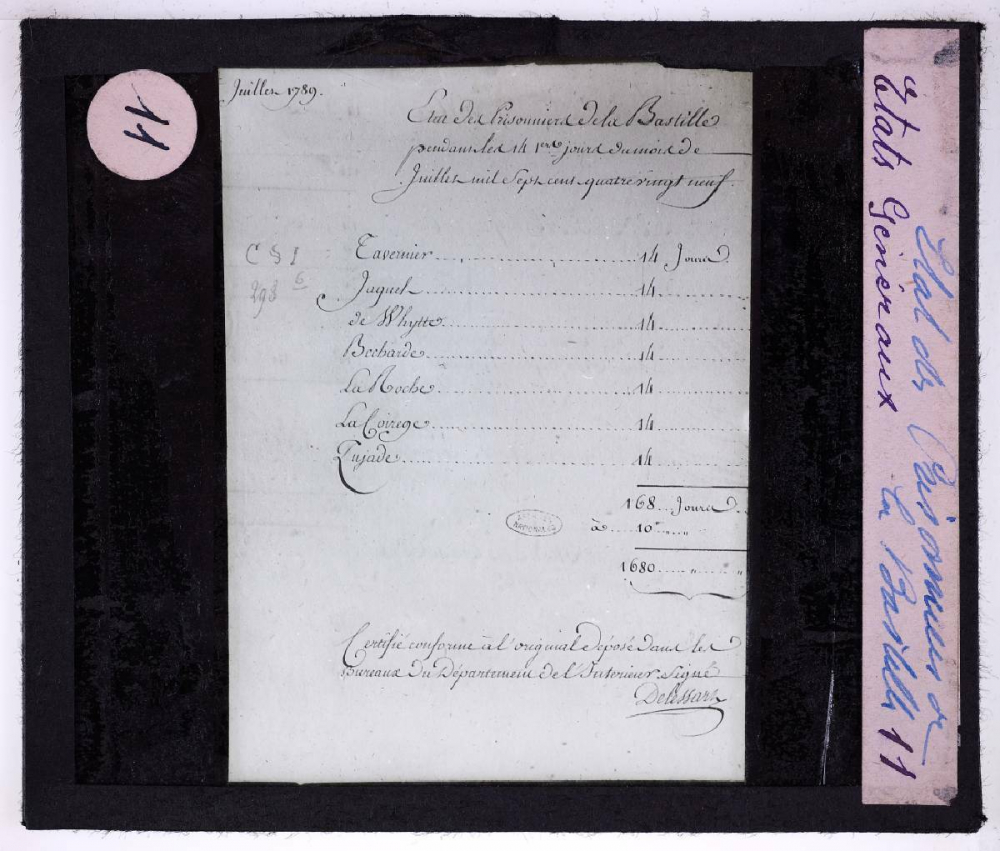 11
Juillet 1789.
Etat des Prisonniers de la Bastille
pendant les 14 1ers jours du mois de
Juillet mil Sept cent quatre vingt neuf.
C § I
298 6
Tavernier 14 Jours
Jaquet 14
de Whytte 14
Béchade 14
La Roche 14
La Corege 14
Pujade 14
168 Jours
à 10
1680
NATIONALES
Certifié conforme à l'original Déposé Dans les
Bureaux Du Département de l'Interieur Signé
Delessart
Etats Généraux
Etat des Prisonniers de
la Bastille 11